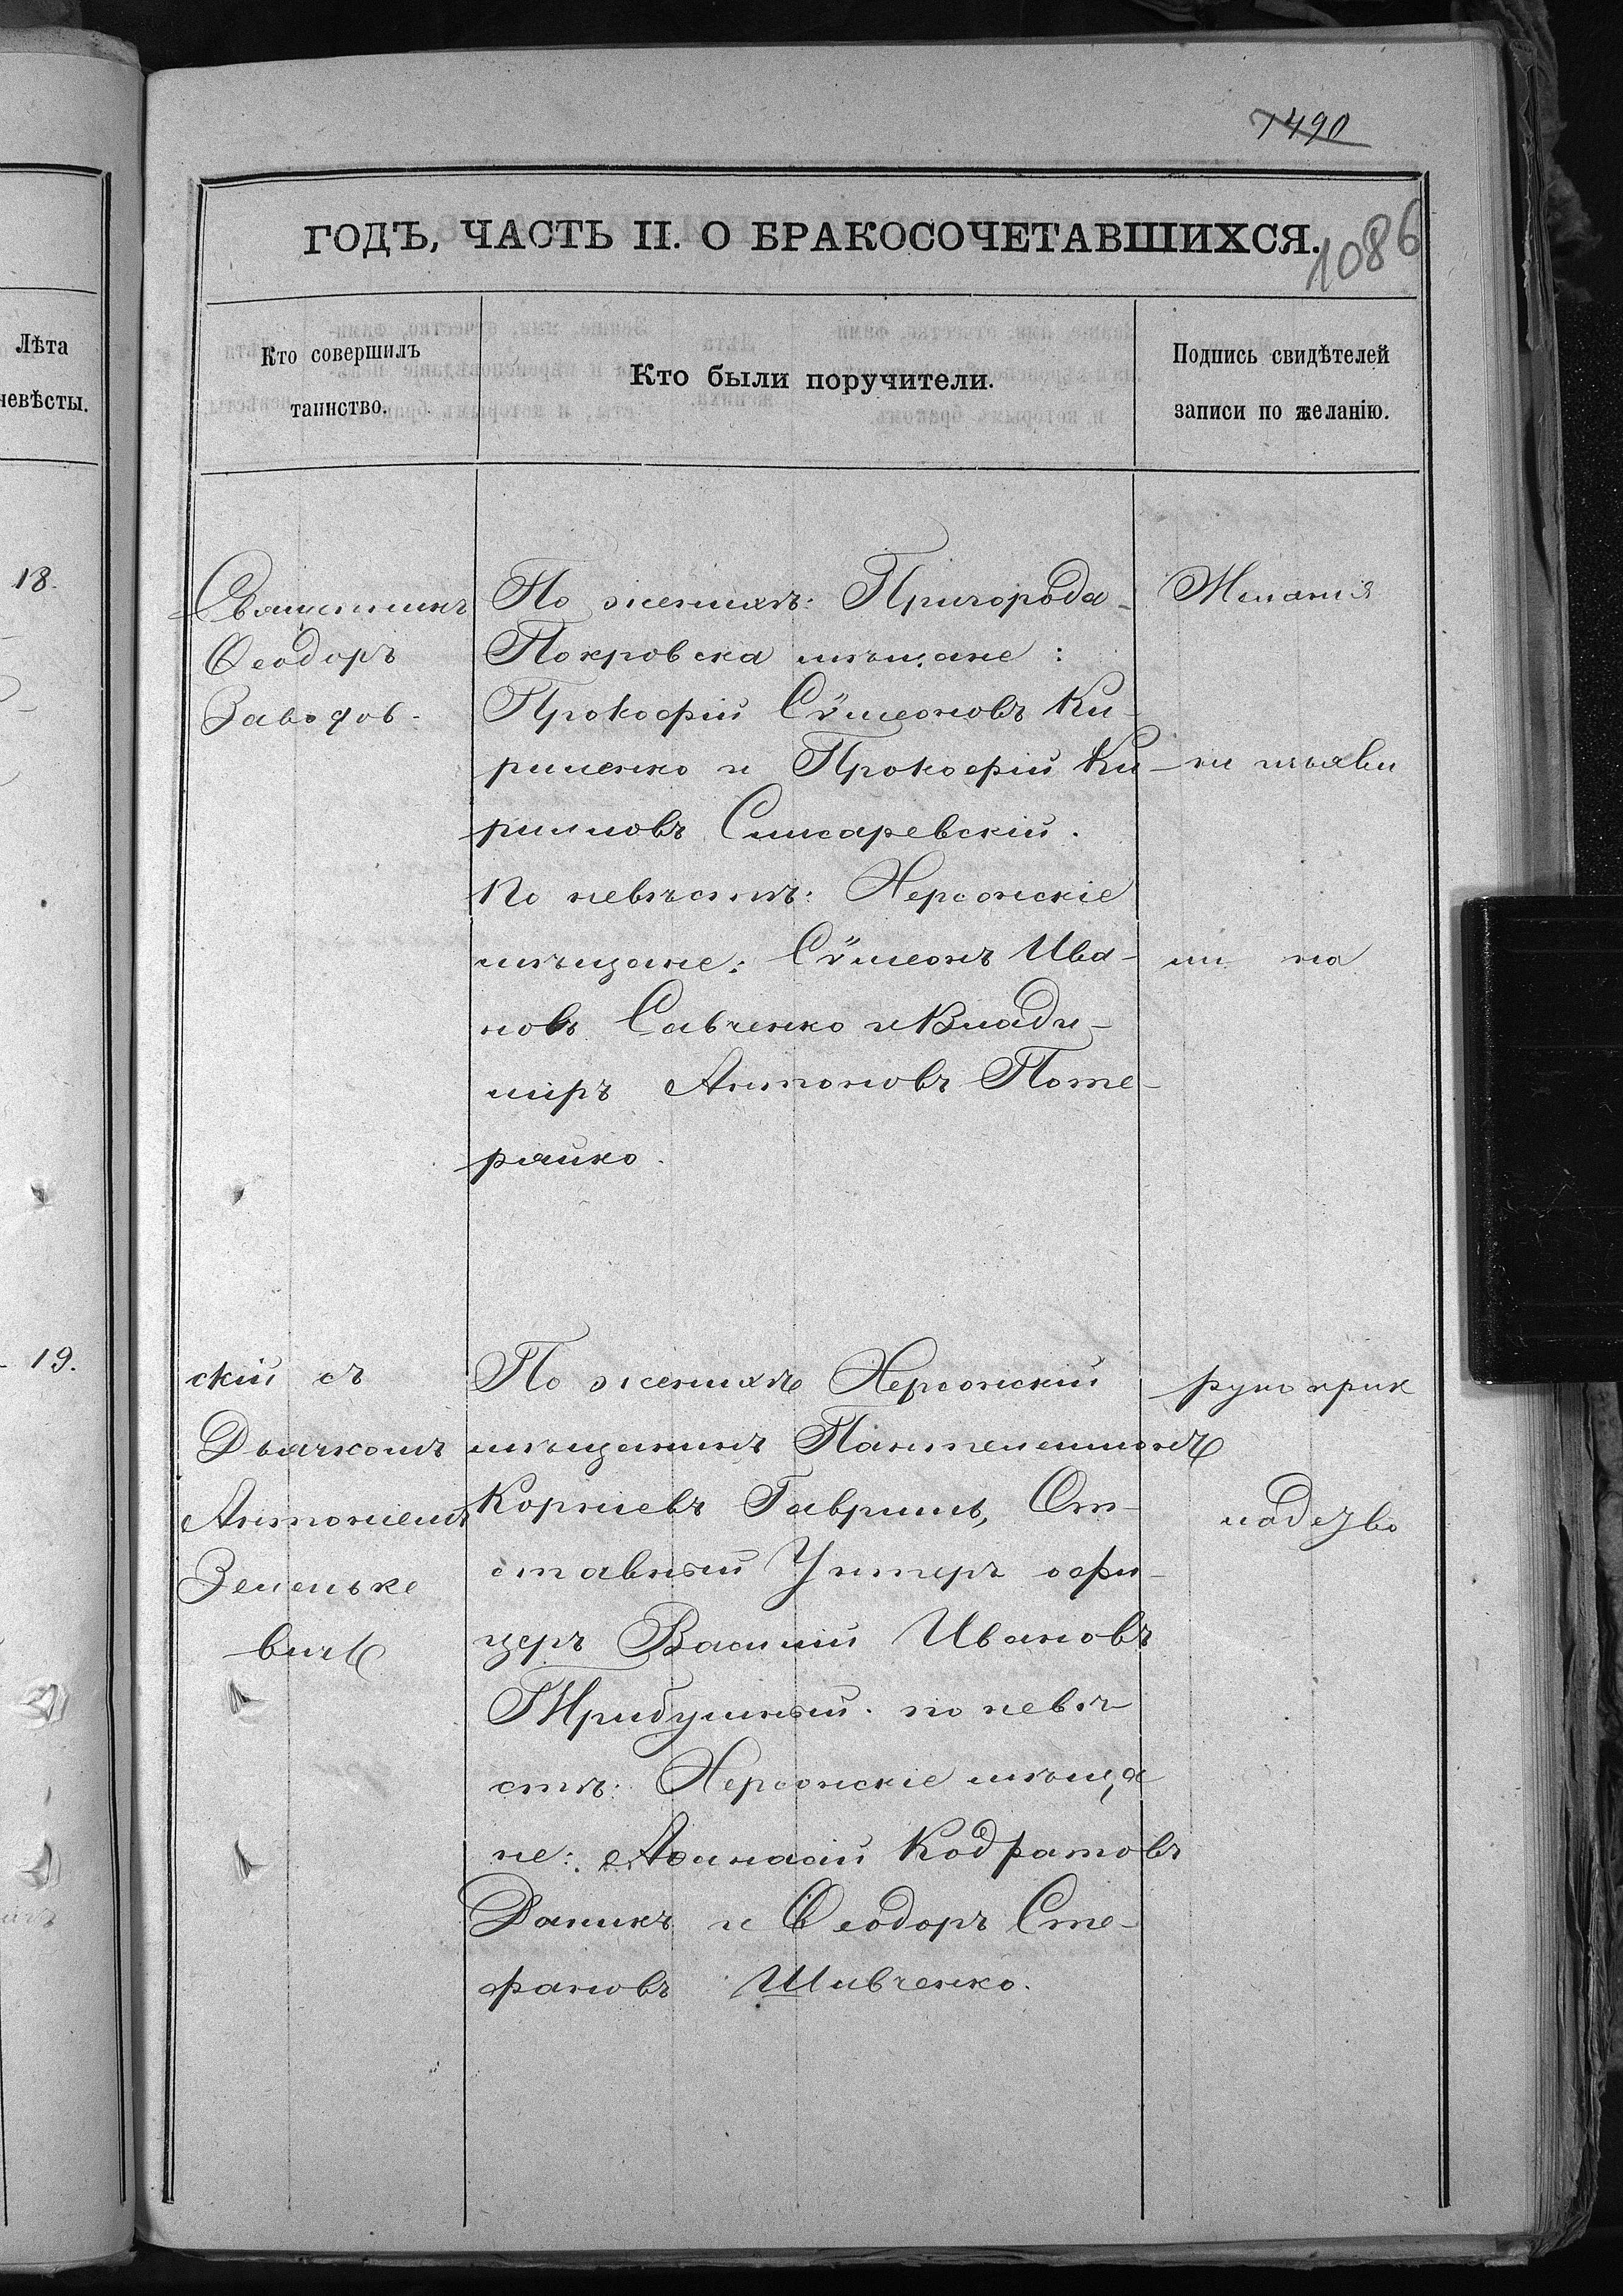 1490
ГОДЪ, ЧАСТЬ II. О БРАКОСОЧЕТАВШИХСЯ.
1086
Лѣта
невѣсты.
Кто совершилъ
таинство.
Кто были поручители.
Подпись свидѣтелей
записи по желанію.
18.
Священникъ
Ѳеодоръ
Заводов-
По женихѣ: Пригорода
Покровска мѣщане:
Прокофій Сѵмеоновъ Ки-
риленко и Прокофій Ки-
рилловъ Слисаревскій.
По невѣстѣ: Херсонскіе
мѣщане: Сѵмеонъ Ива-
новъ Савченко и Влади-
міръ Антоновъ Поте-
райко.
Желанія
не изъяви
ли на
19.
скій съ
Дьячкомъ
Антоніемъ
Зеленьке
вичъ
По женихѣ Херсонскій
мѣщанинъ Пантелеимонъ
Корніевъ Гавришъ, От-
ставный Унтеръ офи-
церъ Василій Ивановъ
Трибушный. по невѣ-
стѣ: Херсонскіе мѣща
не: Аѳанасій Кодратовъ
Даникъ и Ѳеодоръ Сте-
фановъ Шивченко.
рукоприк
ладство